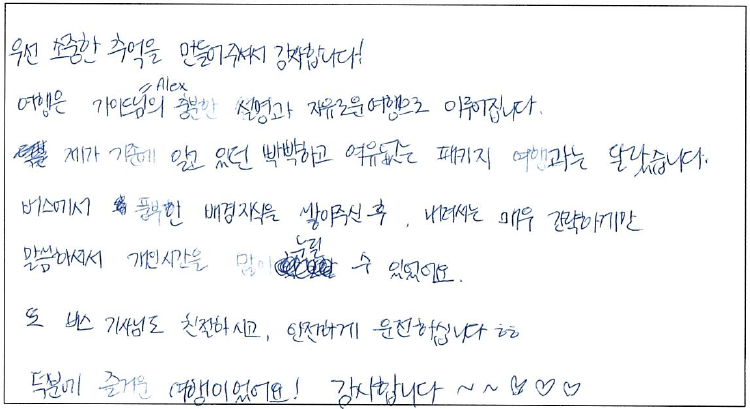 우선 소중한 추억을 만들어주셔서 감사합니다!
여행은 가이드님(=Alex)의 충분한 설명과 자유로운여행으로 이루어집니다.
제가 기존에 알고 있던 빡빡하고 여유없는 패키지 여행과는 달랐습니다.
버스에서 풍부한 배경지식을 쌓아주신 후, 내려서는 매우 간략하게만
말씀하셔서 개인시간을 많이 누릴 수 있었어요.
또 버스 기사님도 친절하시고, 안전하게 운전하십니다 ㅎㅎ
덕분에 즐거운 여행이었어요! 감사합니다 ~ ~ ♡ ♡ ♡